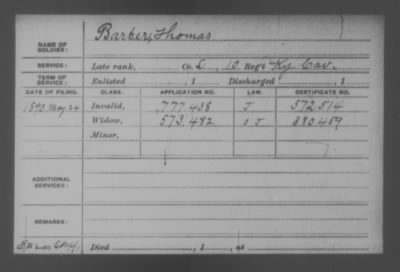 NAME OF SOLDIER: Barber, Thomas
SERVICE: Late rank, Co. L, 10 Reg't Ky Cav.
TERM OF SERVICE: Enlisted , 1 Discharged , 1
DATE OF FILING. CLASS. APPLICATION NO. LAW. CERTIFICATE NO.
1890 May 24 Invalid, 777.438 J 572.514
Widow, 573.482 O J 383.459
Minor,
ADDITIONAL SERVICES:
REMARKS:
Died , 1 , at